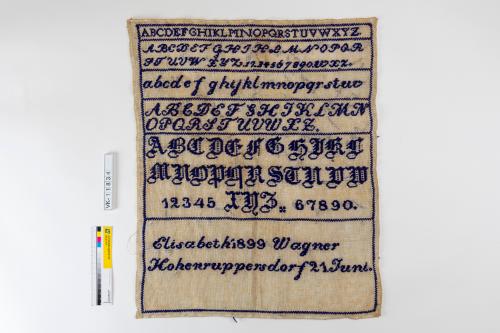 ABCDEFGHIKLMNOPQRSTUVWXYZ.
ABCDEFGHIKLMNOPQR
STUVWXYZ.1234567890.WXZ.
abcdefghyklmnopqrstuv
ABCDEFGHIKLMN
OPQRSTUVWXZ.
ABCDEFGHIKL
MNOPQRSTUVW
12345 XYZ. 67890.
Elisabeth 1899 Wagner
Hohenruppersdorf 21 Juni.
VK-11834